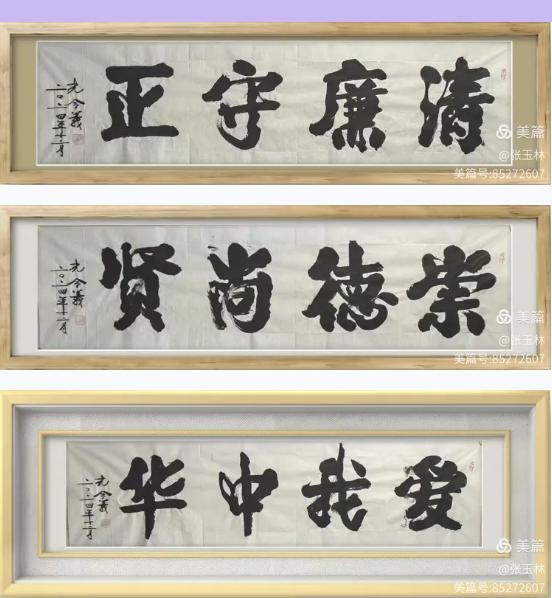 清廉守正
元令義
二〇二四年十二月
美篇
@张玉林
美篇号:85272607
崇德尚贤
元令義
二〇二四年十二月
美篇
@张玉林
美篇号:85272607
爱我中华
元令義
二〇二四年十二月
美篇
@张玉林
美篇号:85272607